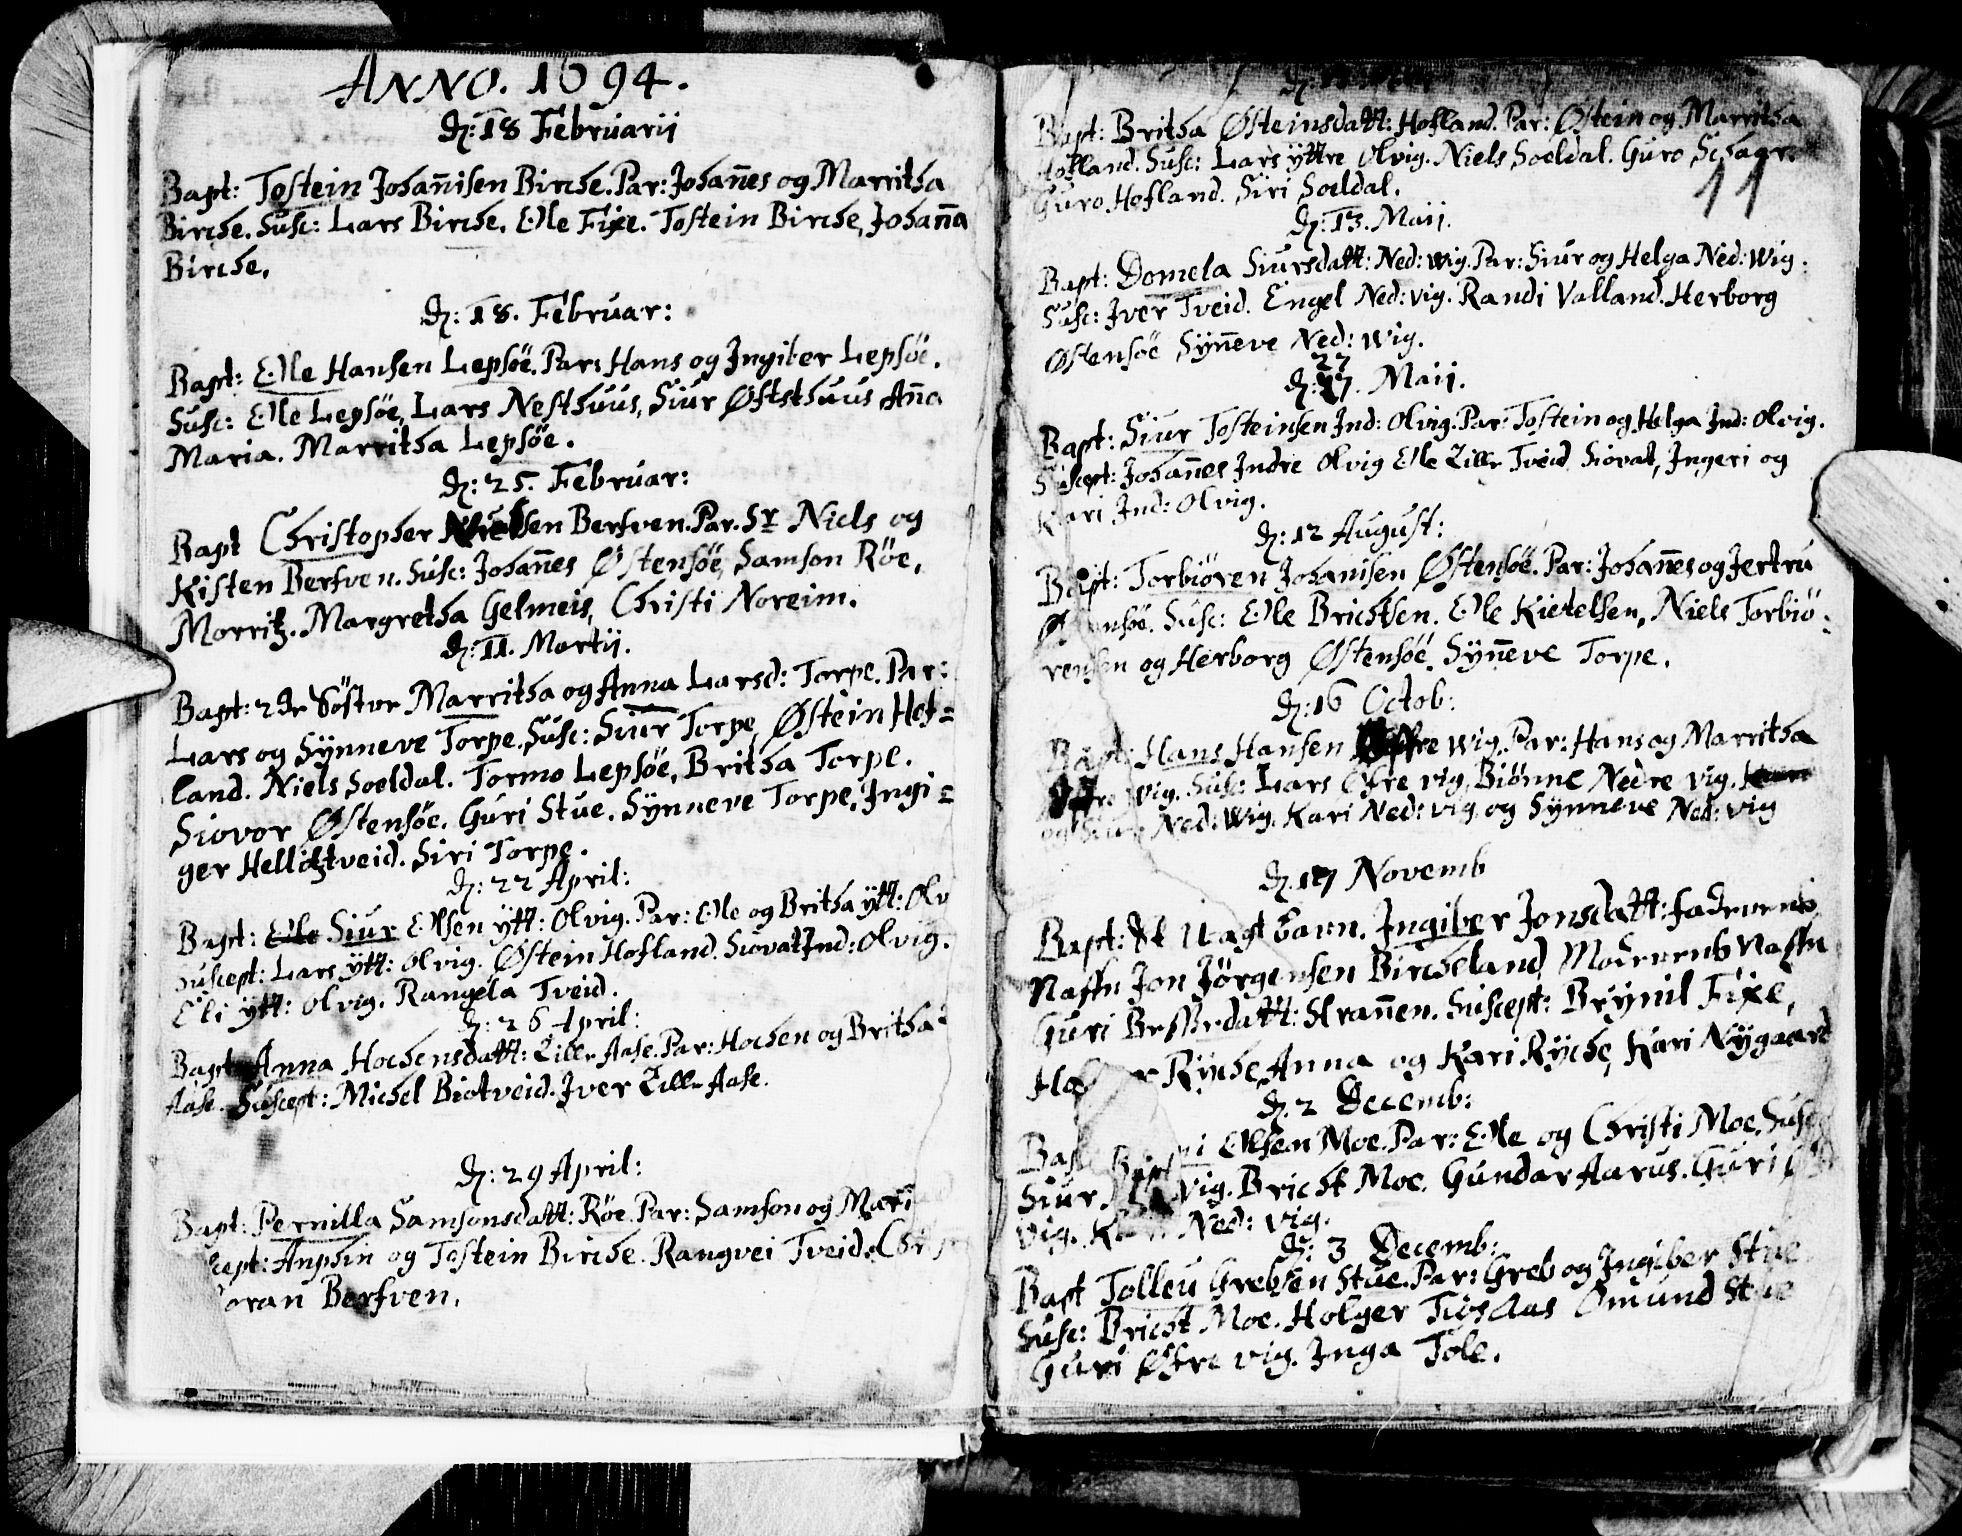 ANNO. 1694.
d: 18 Februarij
Bapt: Tostein Johañisen Birche. Par: Johañes og Marritha
Birche. Susc: Lars Birche, Olle Fixe. Tostein Birche, Johaña
Birche.
d: 18. Februar:
Bapt: Olle Hansen Lepsöe. Par: Hans og Ingiber Lepsöe.
Susc: Olle Lepsöe, Lars Nesthuus, Siur Øststhuus Aña
Maria. Marritha Lepsöe.
d: 25. Februar:
Bapt Christopher Berfven. Par. Sr Niels og
Kisten Berfven. Susc: Johañes Østensöe, Samson Röe,
Morritz. Margretha Gelmeis, Christi Noreim.
d: 11. Martij.
Bapt: 2de Söstre Marritha og Anna Larsd: Torpe. Par:
Lars og Synneve Torpe. Susc: Siur Torpe, Østein Hof=
land. Niels Soeldal. Tormo Lepsöe, Britha Torpe.
Siovor Østensöe. Guri Stue. Synneve Torpe, Ingi=
ger Hellicktveid. Siri Torpe.
d: 22 April:
Bapt: Olle Siur Olsen ÿtt: Olvig. Par: Olle og Britha ÿtt: Olv
suscept: Lars ÿtt: Olvig. Østein Hofland. Siovat Ind: Olvig.
Eli ÿtt: Olvig. Rangela Tveid.
d: 26 April:
Bapt Anna Hochensdatt: Lille Aase. Par: Hochen og Britha
Aase. Suscept: Michel Biotveid. Iver Lille Aase.
d: 29 April:
Bapt: Pernilla Samsonsdatt: Röe. Par: Samson og Mari
cept: Anphin og Tostein Birche. Rangvei Tveid.
Berfven.
Bapt: Britha Østeinsdatt: Hofland. Par: Østein og Marritha
Hofland. Susc: Lars ÿttre Olvig. Niels Soeldal. Guro
11
Guro Hofland. Siri Soeldal.
d: 13. Maij.
Bapt: Domela Siursdatt: Ned: Wig. Par: Siur og Helga Ned: Wig.
Susc: Iver Tveid. Engel Ned: vig. Randi Valland. Herborg
Østensöe Syñeve Ned: Wig.
27
d: Maij.
Bapt: Siur Tosteinsen Ind: Olvig. Par Tostein og Helga Ind: Olvig.
Suscept: Johañes Indre Olvig Olle Lille Tveid Siovat, Ingeri og
Kari Ind: Olvig.
d: 12 August:
Bapt: Torbiören Johanisen Østensöe. Par: Johañes og Jertru
Østensöe. Susc: Olle Brichtsen. Olle Kietelsen, Niels Torbiö:
rensen og Herborg Østensöe. Syñeve Torpe.
d: 16 Octob:
Bapt: Hans Hansen Wig. Par: Hans og Marritha
Wig. Susc: Lars Øfre vig, Biönne Nedre vig.
og Ned: Wig. Kari Ned: vig og Synneve Ned: vig
d. 17 Novemb
Bapt: Et Uægt barn. Ingiber Jonsdatt: faderens
Nafn Jon Jörgensen Bircheland, Moderens Nafn
Guri datt: Strañen. Suscept: Brÿnil Fixe,
Rÿche, Anna og Kari Rÿche, Kari Nÿgaard
d. 2 Decemb:
Olsen Moe. Par: Olle og Christi Moe. Susc
Siur. vig. Bricht Moe. Gundar Aarus. Guri
vig. Ned: vig.
d: 3 Decemb:
Bapt Tolleu Grebsen Stue. Par: Greb og Ingiber Stue
Susc: Bricht Moe. Holger Omund Stue
Guri Øfre vig. Inga Tole.